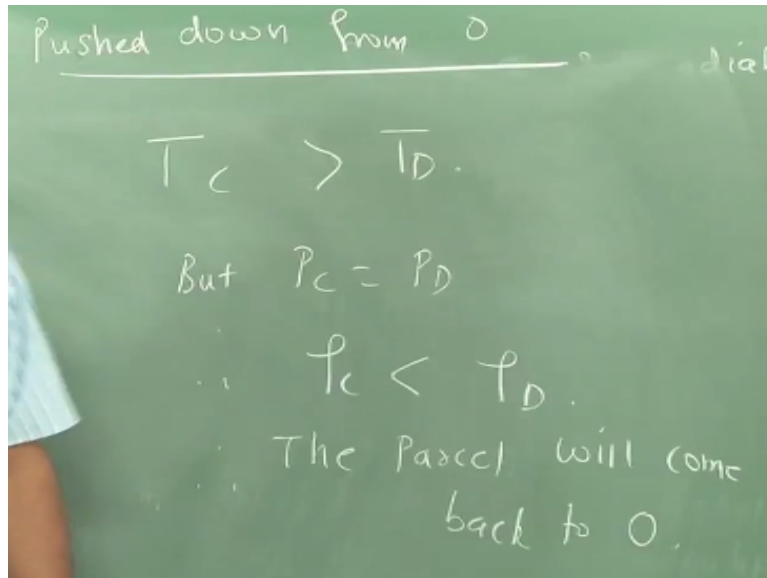 Pushed down from 0
dial
T_C > T_D.
But P_C = P_D
∴ ρ_C < ρ_D.
∴ The Parcel will come
back to 0.